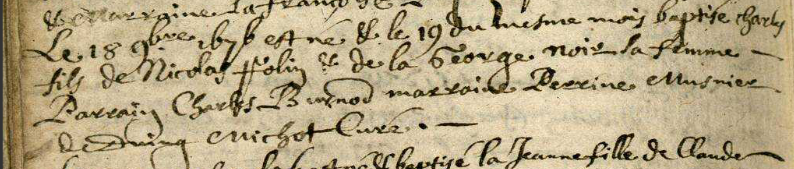 & Marraine la françoise
Le 18 9bre 1676 est né & le 19 du mesme mois baptise charles
fils de Nicolas ffolin & de la George noir sa femme
Parrain Charles Burnod marraine Perrine Musnier
de Duing Michot Curé.
baptisé la Jeanne fille de Claude